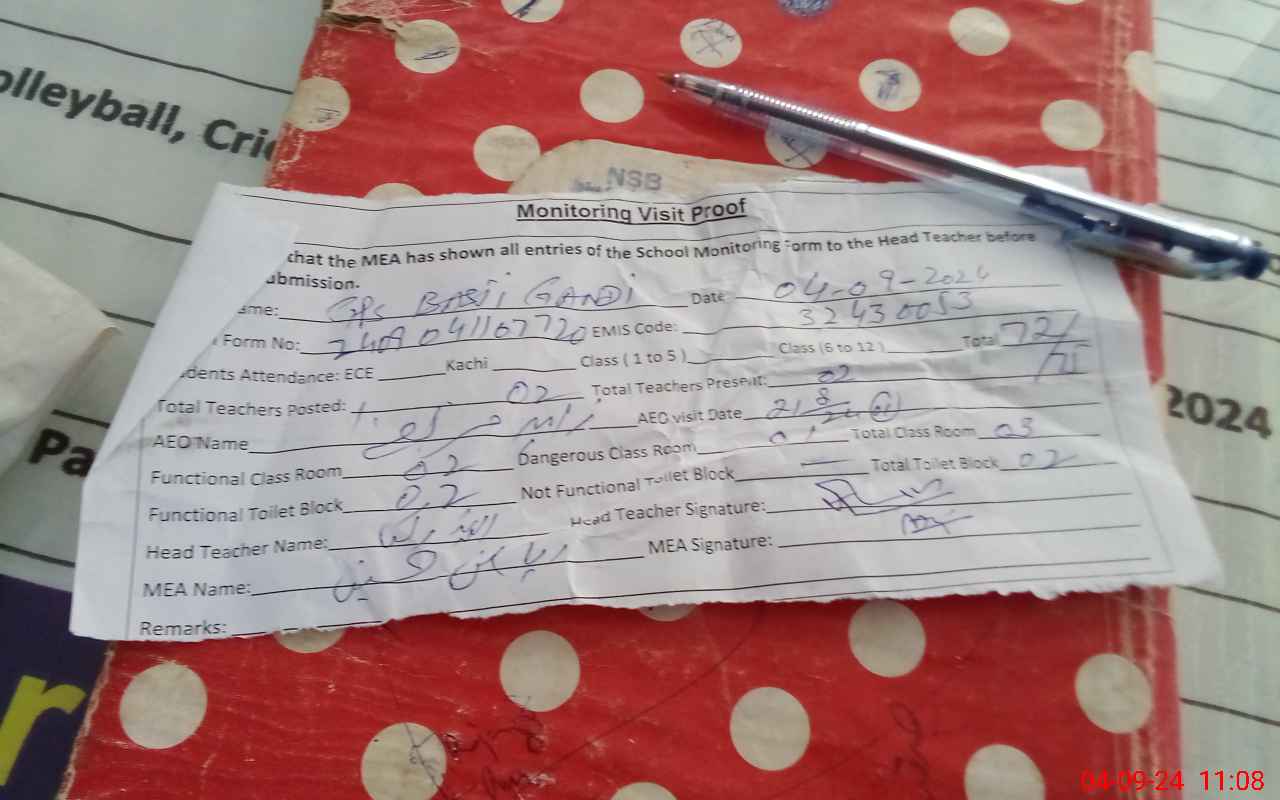 olleyball, Cric
NSB
Monitoring Visit Proof
that the MEA has shown all entries of the School Monitoring Form to the Head Teacher before
ubmission.
ame: GPS BASTI GANDI Date: 04-09-2024
Form No: EMIS Code: 32430053
dents Attendance: ECE Kachi Class ( 1 to 5 ) Class (6 to 12 ) Total 72/71
Total Teachers Posted: 02 Total Teachers Present: 02
AEO Name AEO visit Date
Functional Class Room 02 Dangerous Class Room 01 Total Class Room 03
Functional Toilet Block 02 Not Functional Toilet Block — Total Toilet Block 02
Head Teacher Name: Head Teacher Signature:
MEA Name: MEA Signature:
Remarks:
2024
Pa
r
04-09-24 11:08